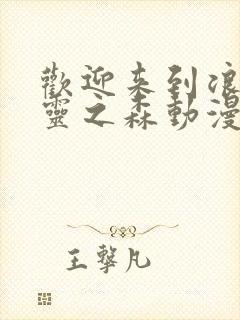 歡迎来到浪
靈之森動漫
王擊凡